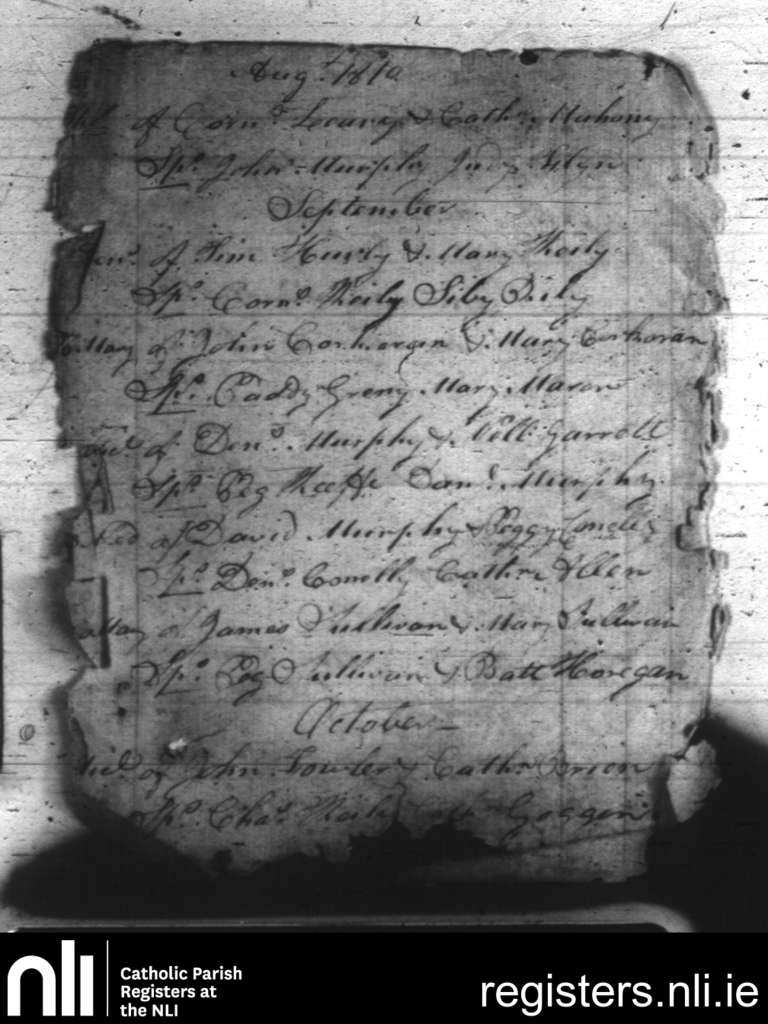 Augt. 1810
of Corns. Leary & Cathe. Mahony
Sps. John Murphy Judy Flyn
September
of Tim Hurly & Mary Keily
Sps. Corns. Keily Siby Keily
Mary of John Corkoran & Mary Corkoran
Sps. Paddy Mary
of Denis. Murphy & Garrett
Sps. Peg Keeffe Danl. Murphy
of David Murphy & Peggy
Sps. Denis. Connelly Cathe. Allen
Mary of James Sullivan & Mary Sullivan
Sps. Peg Sullivan & Batt Horegan
October
of John Fowler & Cathe. Brien
Sps. Chas. Keily Goggin
nli
Catholic Parish
Registers at
the NLI
registers.nli.ie